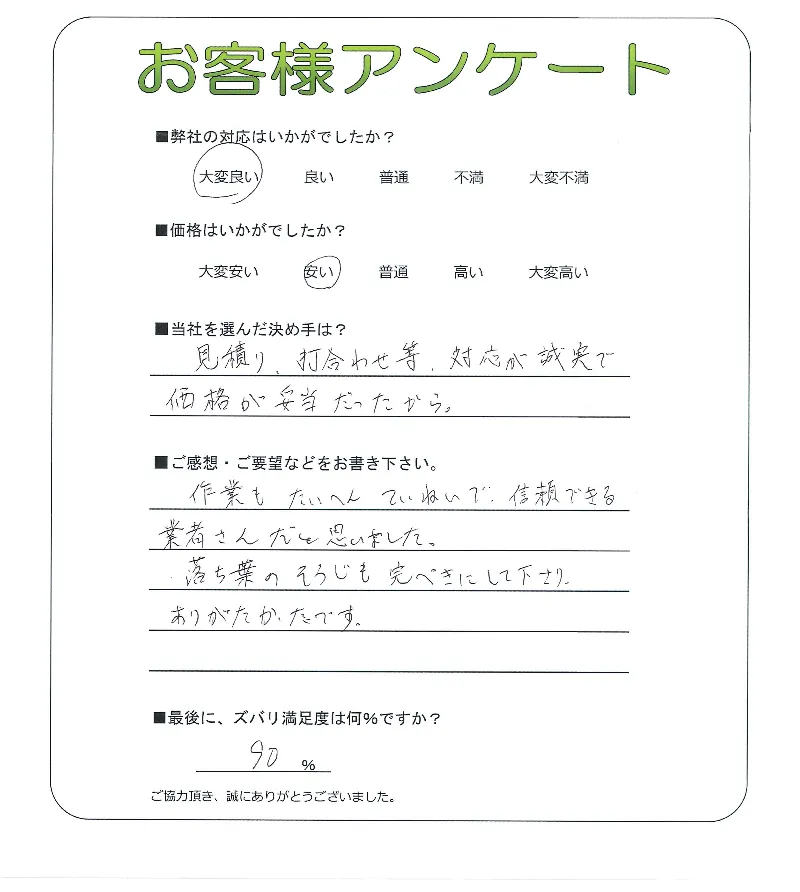 お客様アンケート
■弊社の対応はいかがでしたか？
大変良い 良い 普通 不満 大変不満
■価格はいかがでしたか？
大変安い 安い 普通 高い 大変高い
■当社を選んだ決め手は？
見積り、打合わせ等、対応が誠実で
価格が妥当だったから。
■ご感想・ご要望などをお書き下さい。
作業もたいへんていねいで、信頼できる
業者さんだと思いました。
落ち葉のそうじも完ぺきにして下さり、
ありがたかったです。
■最後に、ズバリ満足度は何%ですか？
90 %
ご協力頂き、誠にありがとうございました。